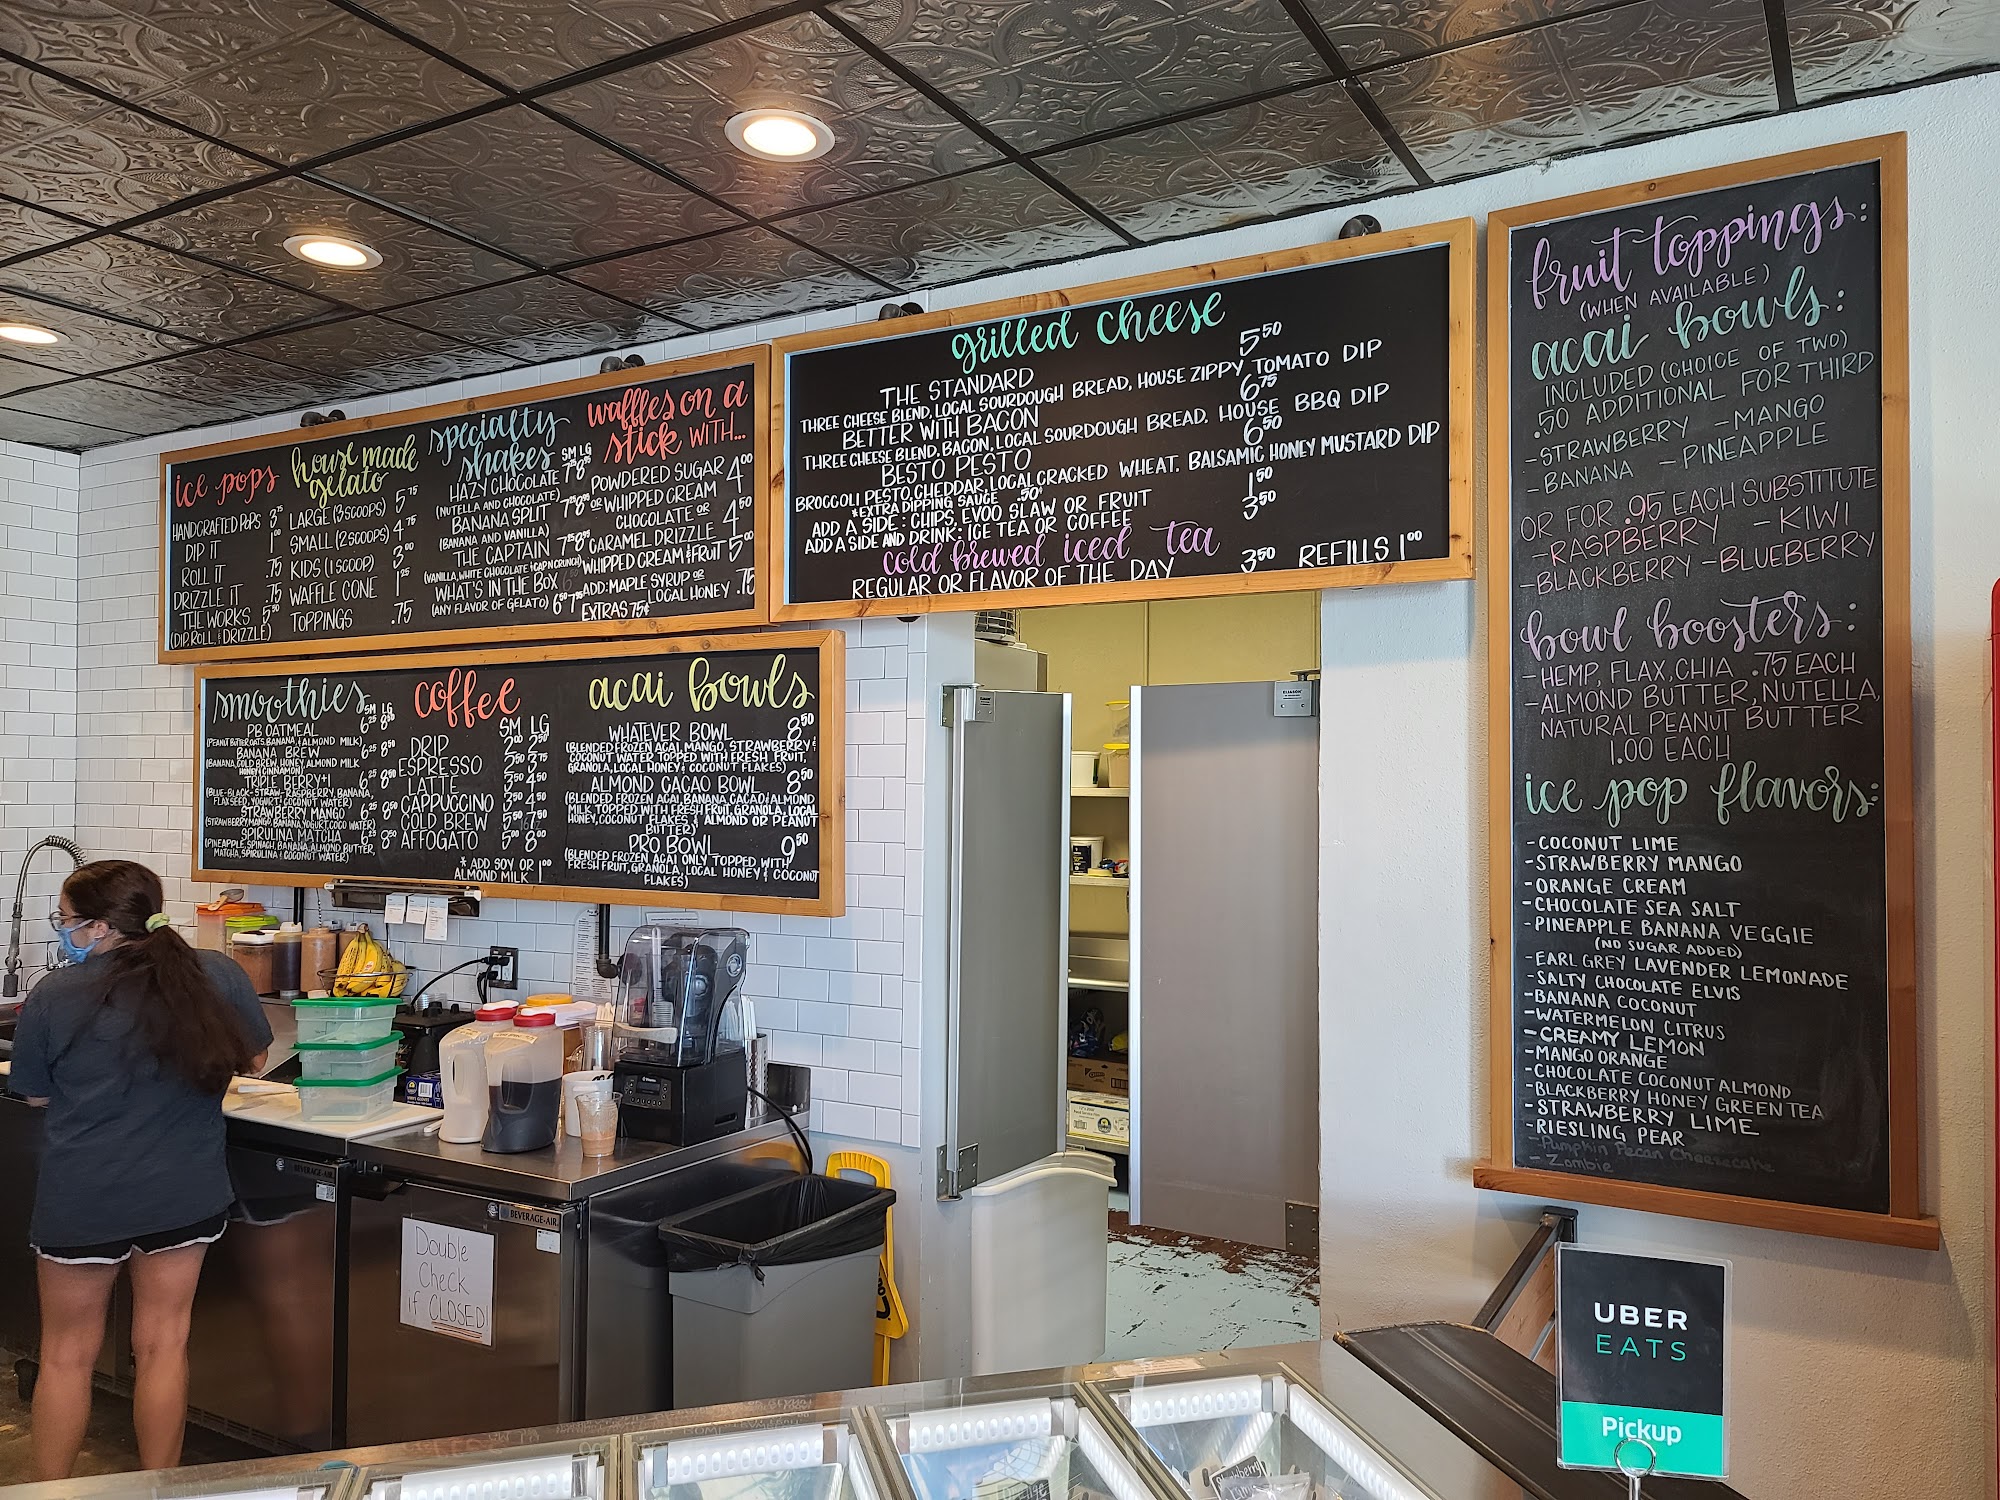 ice pops
HANDCRAFTED POPS 3 75
DIP IT 1 00
ROLL IT .75
DRIZZLE IT .75
THE WORKS 5 50
(DIP, ROLL, & DRIZZLE)
house made
gelato
LARGE (3 SCOOPS) 5 75
SMALL (2 SCOOPS) 4 75
KIDS (1 SCOOP) 3 00
WAFFLE CONE 1 25
TOPPINGS .75
specialty
shakes SM LG
HAZY CHOCOLATE 7 25 8 95
(NUTELLA AND CHOCOLATE)
BANANA SPLIT 7 25 8 95
(BANANA AND VANILLA)
THE CAPTAIN 7 25 8 95
(VANILLA, WHITE CHOCOLATE & CAP N CRUNCH)
WHAT'S IN THE BOX
(ANY FLAVOR OF GELATO) 6 50 7 95
waffles on a
stick WITH...
POWDERED SUGAR 4 00
OR WHIPPED CREAM
CHOCOLATE OR
CARAMEL DRIZZLE 4 50
WHIPPED CREAM & FRUIT 5 00
ADD: MAPLE SYRUP OR
LOCAL HONEY .75
EXTRAS 75¢
grilled cheese
THE STANDARD 5 50
THREE CHEESE BLEND, LOCAL SOURDOUGH BREAD, HOUSE ZIPPY TOMATO DIP
BETTER WITH BACON 6 75
THREE CHEESE BLEND, BACON, LOCAL SOURDOUGH BREAD. HOUSE BBQ DIP
BESTO PESTO 6 50
BROCCOLI PESTO, CHEDDAR, LOCAL CRACKED WHEAT. BALSAMIC HONEY MUSTARD DIP
*EXTRA DIPPING SAUCE .50¢
ADD A SIDE: CHIPS, EVOO SLAW OR FRUIT 1 50
ADD A SIDE AND DRINK: ICE TEA OR COFFEE 3 50
cold brewed iced tea
REGULAR OR FLAVOR OF THE DAY 3 50 REFILLS 1 00
smoothies
SM LG
PB OATMEAL 6 25 8 50
(PEANUT BUTTER, OATS, BANANA, & ALMOND MILK)
BANANA BREW 6 25 8 50
(BANANA, COLD BREW, HONEY, ALMOND MILK
HONEY & CINNAMON)
TRIPLE BERRY+1 6 25 8 50
(BLUE-BLACK-STRAW-RASPBERRY, BANANA,
FLAXSEED, YOGURT & COCONUT WATER)
STRAWBERRY MANGO 6 25 8 50
(STRAWBERRY, MANGO, BANANA, YOGURT, COCO WATER)
SPIRULINA MATCHA 6 25 8 50
(PINEAPPLE, SPINACH, BANANA, ALMOND BUTTER,
MATCHA, SPIRULINA & COCONUT WATER)
coffee
SM LG
DRIP 2 00 2 50
ESPRESSO 2 50 3 75
LATTE 3 50 4 50
CAPPUCCINO 3 50 4 50
COLD BREW 5 50 7 50
AFFOGATO 5 00 8 00
* ADD SOY OR
ALMOND MILK 1 00
acai bowls
WHATEVER BOWL 8 50
(BLENDED FROZEN ACAI, MANGO, STRAWBERRY &
COCONUT WATER TOPPED WITH FRESH FRUIT,
GRANOLA, LOCAL HONEY & COCONUT FLAKES)
ALMOND CACAO BOWL 8 50
(BLENDED FROZEN ACAI, BANANA, CACAO & ALMOND
MILK, TOPPED WITH FRESH FRUIT, GRANOLA, LOCAL
HONEY, COCONUT FLAKES, & ALMOND OR PEANUT
BUTTER)
PRO BOWL 9 50
(BLENDED FROZEN ACAI ONLY TOPPED WITH
FRESH FRUIT, GRANOLA, LOCAL HONEY & COCONUT
FLAKES)
fruit toppings:
(WHEN AVAILABLE)
acai bowls:
INCLUDED (CHOICE OF TWO)
.50 ADDITIONAL FOR THIRD
-STRAWBERRY -MANGO
-BANANA -PINEAPPLE
OR FOR .95 EACH SUBSTITUTE
-RASPBERRY -KIWI
-BLACKBERRY -BLUEBERRY
bowl boosters:
-HEMP, FLAX, CHIA .75 EACH
-ALMOND BUTTER, NUTELLA,
NATURAL PEANUT BUTTER
1.00 EACH
ice pop flavors:
-COCONUT LIME
-STRAWBERRY MANGO
-ORANGE CREAM
-CHOCOLATE SEA SALT
-PINEAPPLE BANANA VEGGIE
(NO SUGAR ADDED)
-EARL GREY LAVENDER LEMONADE
-SALTY CHOCOLATE ELVIS
-BANANA COCONUT
-WATERMELON CITRUS
-CREAMY LEMON
-MANGO ORANGE
-CHOCOLATE COCONUT ALMOND
-BLACKBERRY HONEY GREEN TEA
-STRAWBERRY LIME
-RIESLING PEAR
-Pumpkin Pecan Cheesecake
-Zombie
BEVERAGE-AIR
BEVERAGE-AIR
Double
Check
if CLOSED!
ELIASON
UBER
EATS
Pickup
Strawberry
Lime